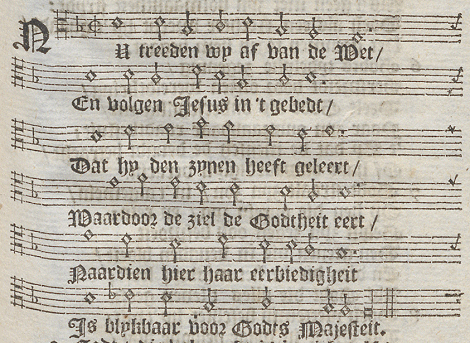 NU treeden wy af van de Wet/
En volgen Jesus in 't gebedt/
Dat hy den zynen heeft geleert/
Waardoor de ziel de Godtheit eert/
Naardien hier haar eerbiedigheit
Is blykbaar voor Godts Majesteit.